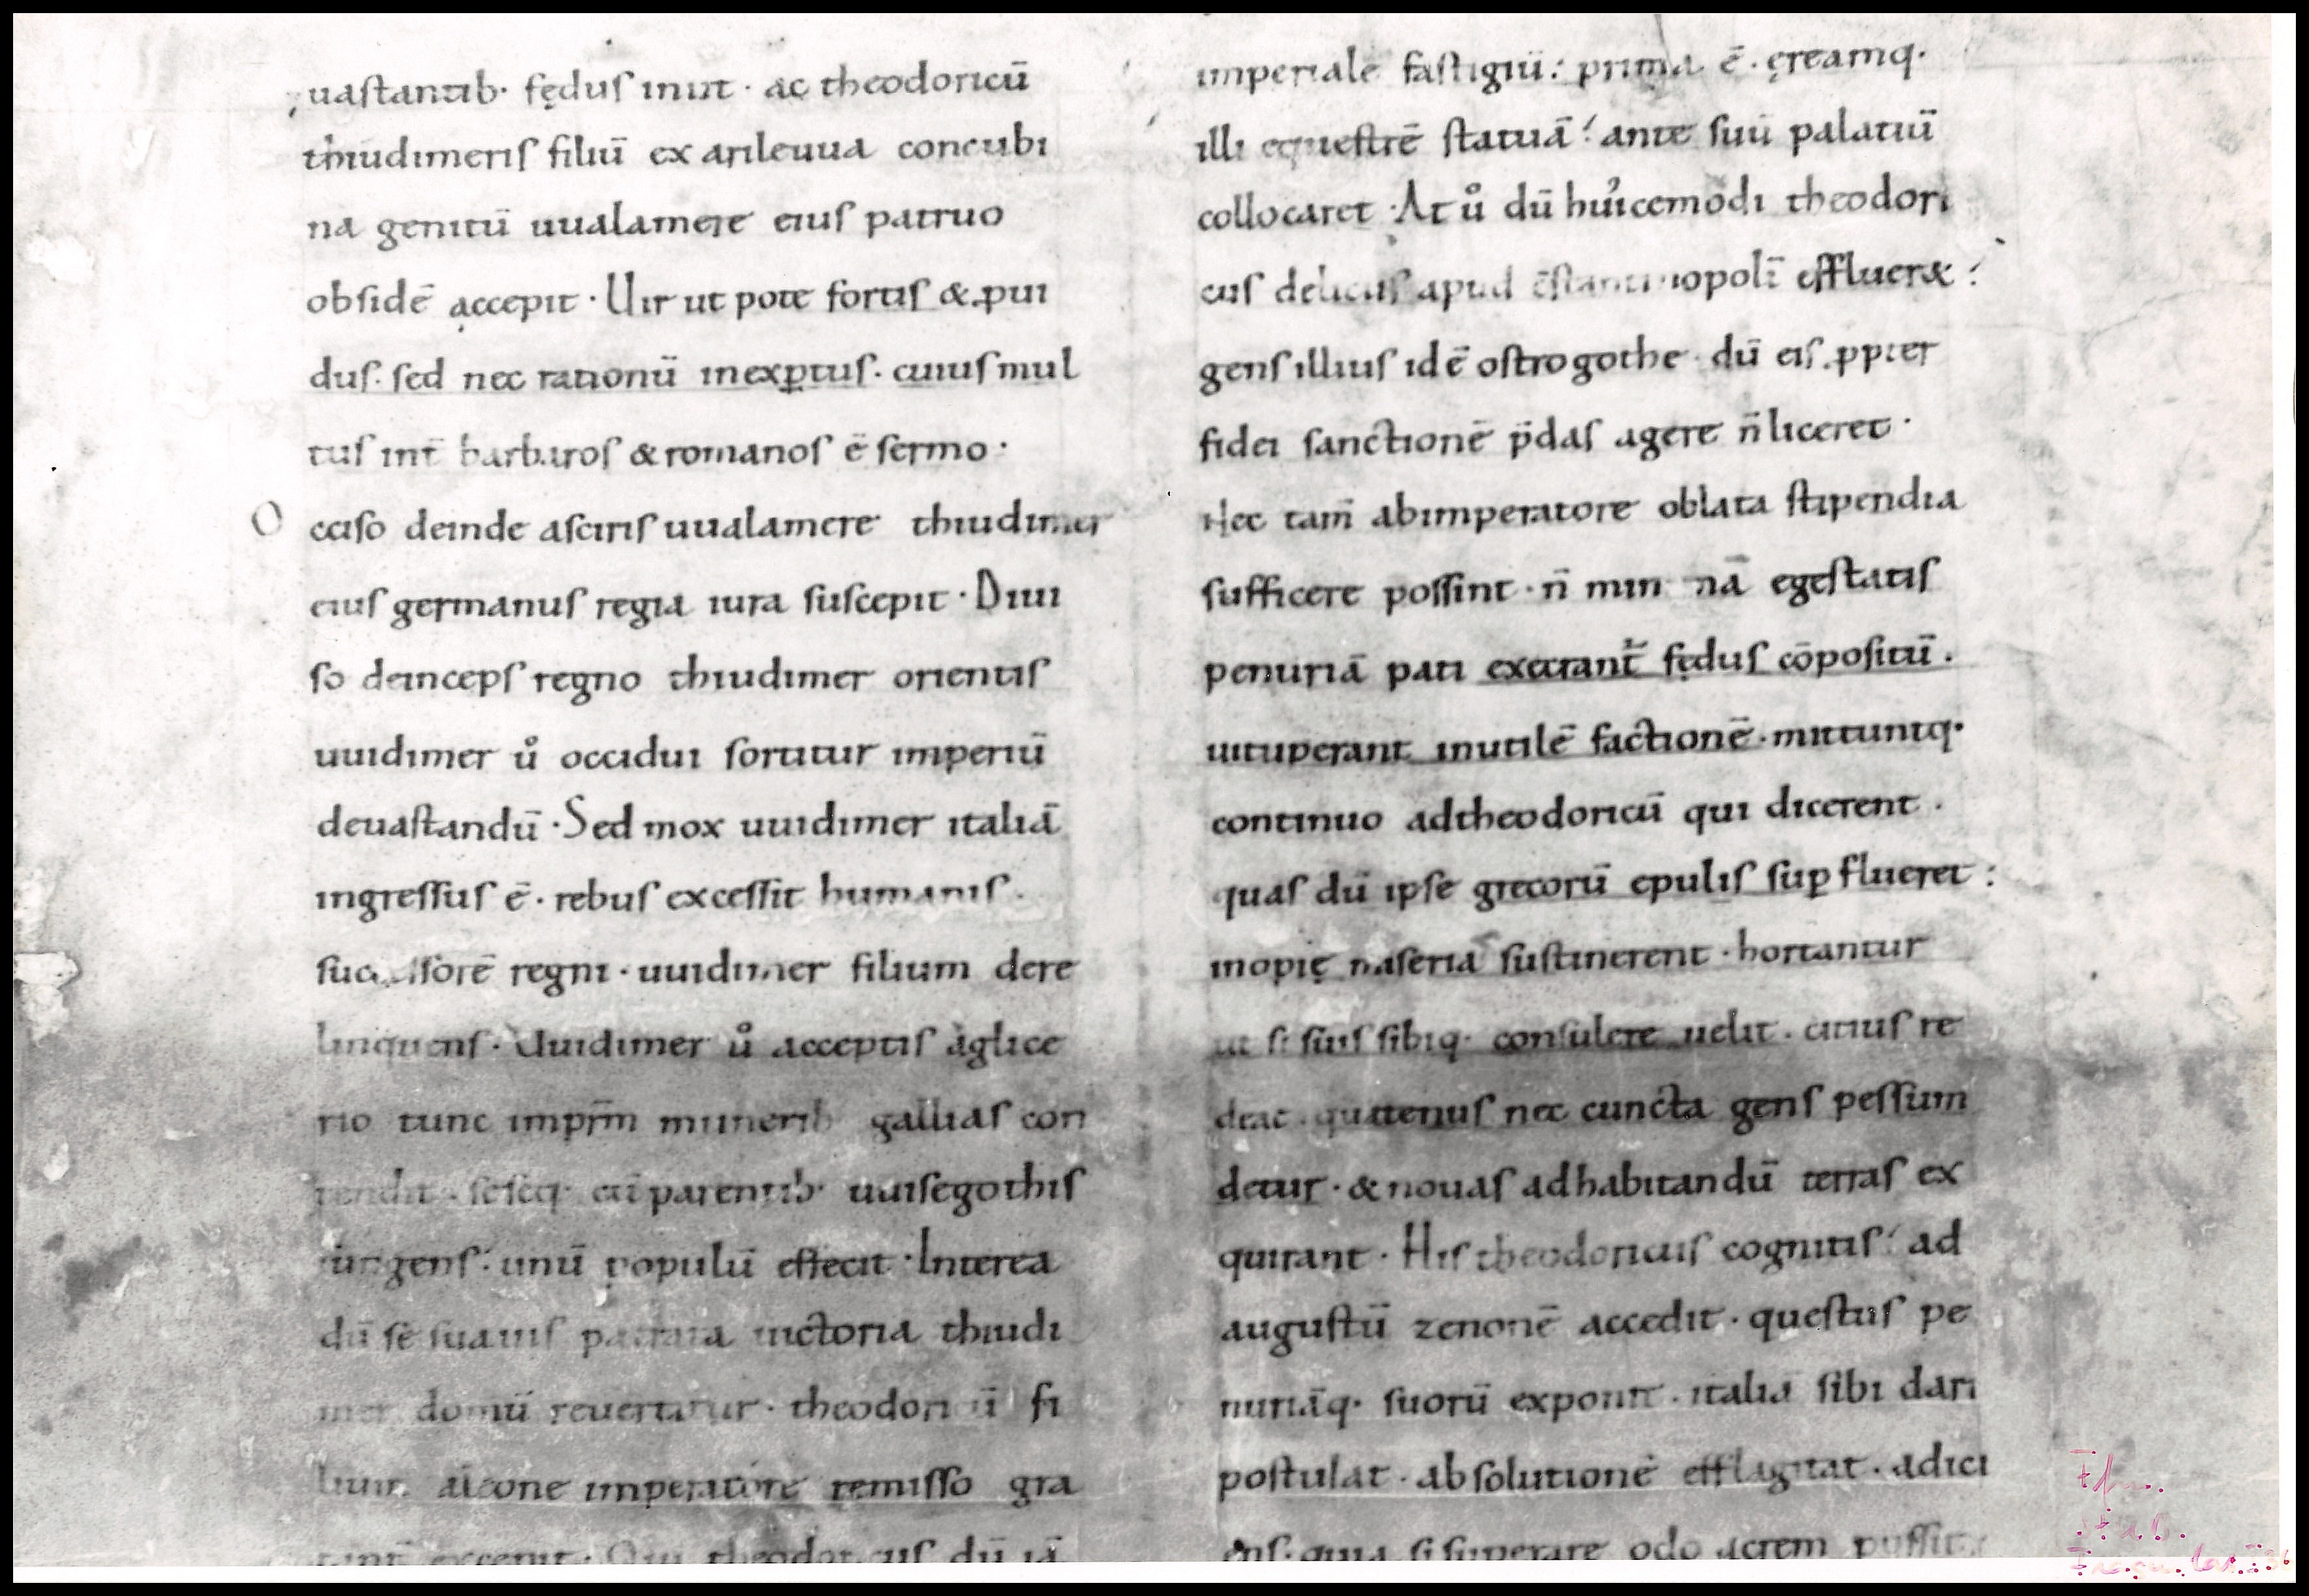 uastantib· fędus iniit · ac theodoricū
thiudimeris filiū ex arileuua concubi
na genitū uualamere eius patruo
obsidē accepit · Uir ut pote fortis & ꝓui
dus· sed nec rationū inexꝑtus· cuius mul
tus int̄ barbaros & romanos ē sermo ·
Occiso deinde asciris uualamere thiudimer
eius germanus regia iura suscepit · Diui
so deinceps regno thiudimer orientis
uuidimer ů occidui sortitur imperiū
deuastandū · Sed mox uuidimer italiā
ingressus ē · rebus excessit humanis ·
successorē regni · uuidimer filium dere
linquens · Uuidimer ů acceptis aglice
rio tunc imprm̄ munerib gallias con
tendit · seseq· cū parentib· uuisegothis
iungens · unū populū effecit · Interea
dū se suauis patrata uictoria thiudi
mer domū reuertitur · theodoricū fi
lium aleone imperatore remisso gra
tant̄ excepit · Qui theodoricus dū iā
imperiale fastigiū: prima ē · ęreamq·
illi equestrē statuā ante suū palatiū
collocaret · At ů dū hui᷒cemodi theodori
cus deliciis apud c̄stantinopolī efflueret
gens illius idē ostrogothe · dū eis ꝓpter
fidei sanctionē p̄das agere n̄ liceret ·
Nec tam̄ abimperatore oblata stipendia
sufficere possint · n̄ min nā egestatis
penuriā pati execrant̄ fędus cōpositū ·
uituperant inutilē factionē · mittuntq·
continuo adtheodoricū qui dicerent ·
quas dū ipse grecorū epulis suꝑflueret :
inopię miseria sustinerent · hortantur
ut si suis sibiq· consulere uelit · citius re
deat · quatenus nec cuncta gens pessum
detur · & nouas adhabitandū terras ex
quirant · His theodoricus cognitis ad
augustū zenonē accedit · questus pe
nuriāq· suorū exponit · italiā sibi dari
postulat · absolutionē efflagitat · adici
ens· quia si superare odoacrem possit